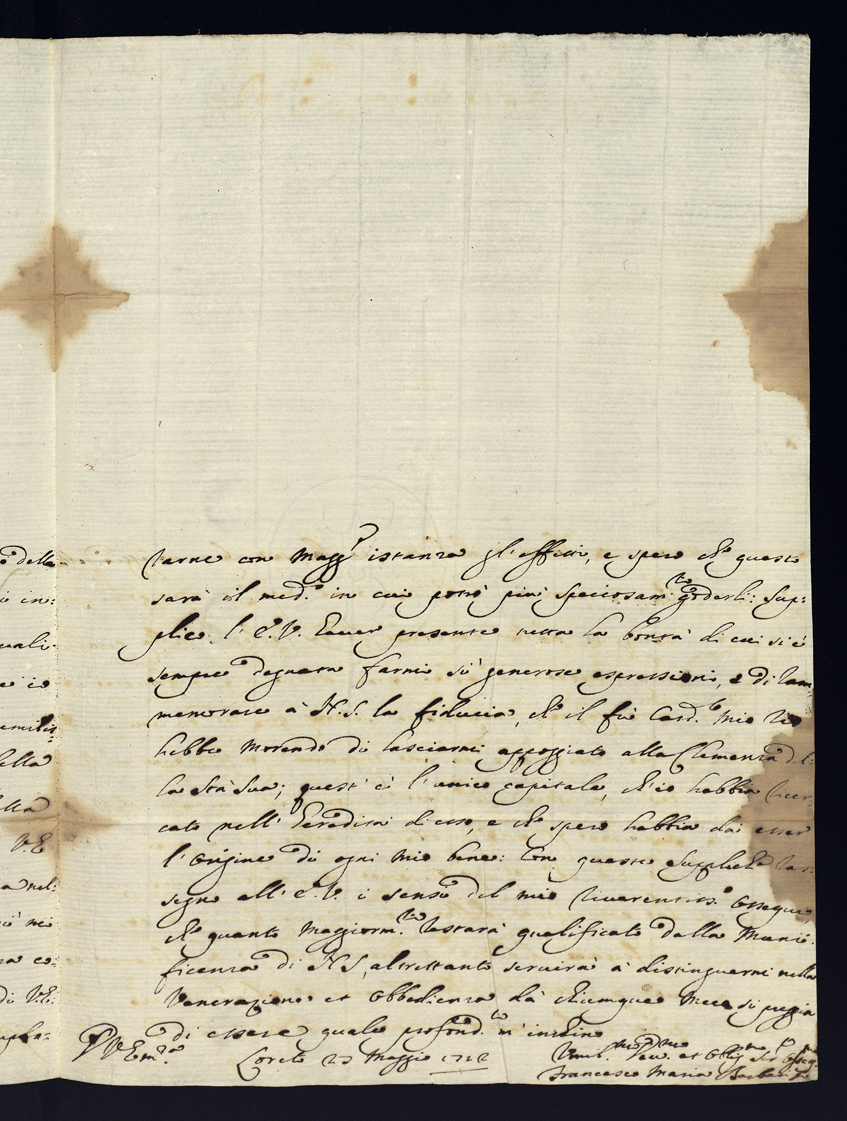 o della
o in:
quali:
e io
umilis:
ella
lla
V.E
a nel:
mi
a co:
di V.E.
upla:
tarne con Magg.r istanza gl'effetti, e spero ch.e questo
sarà il med.o in cui potrò più speciosam.te goderli: Sup:
plico l'E.V. haver presente tutta la bontà di cui si è
sempre degnata farmi sì generose espressioni, e di ram
memorare à N.S. la fiducia, ch.e il fù Card.le mio Zio
hebbe morendo di lasciarmi appoggiato alla Clemenza del:
la Stà Sua; quest'è l'unico capitale, ch'io habbia ricer
cato nell'heredità di esso, e ch.e spero habbia da esser
l'origine di ogni mio bene: Con queste suppliche ras:
segno all'E.V. i sensi del mio riverentiss.o ossequio,
ch.e quanto maggiorm.te restarà qualificato dalla Muni:
ficenza di N.S, altrettanto servirà à distinguermi nella
Venerazione et obbedienza dà chiunque meco si pregia
di essere quale profond.te m'inchino
D V Em.za
Loreto 23 Maggio
Umil.mo Dev.mo et Oblig.mo
Francesco Maria